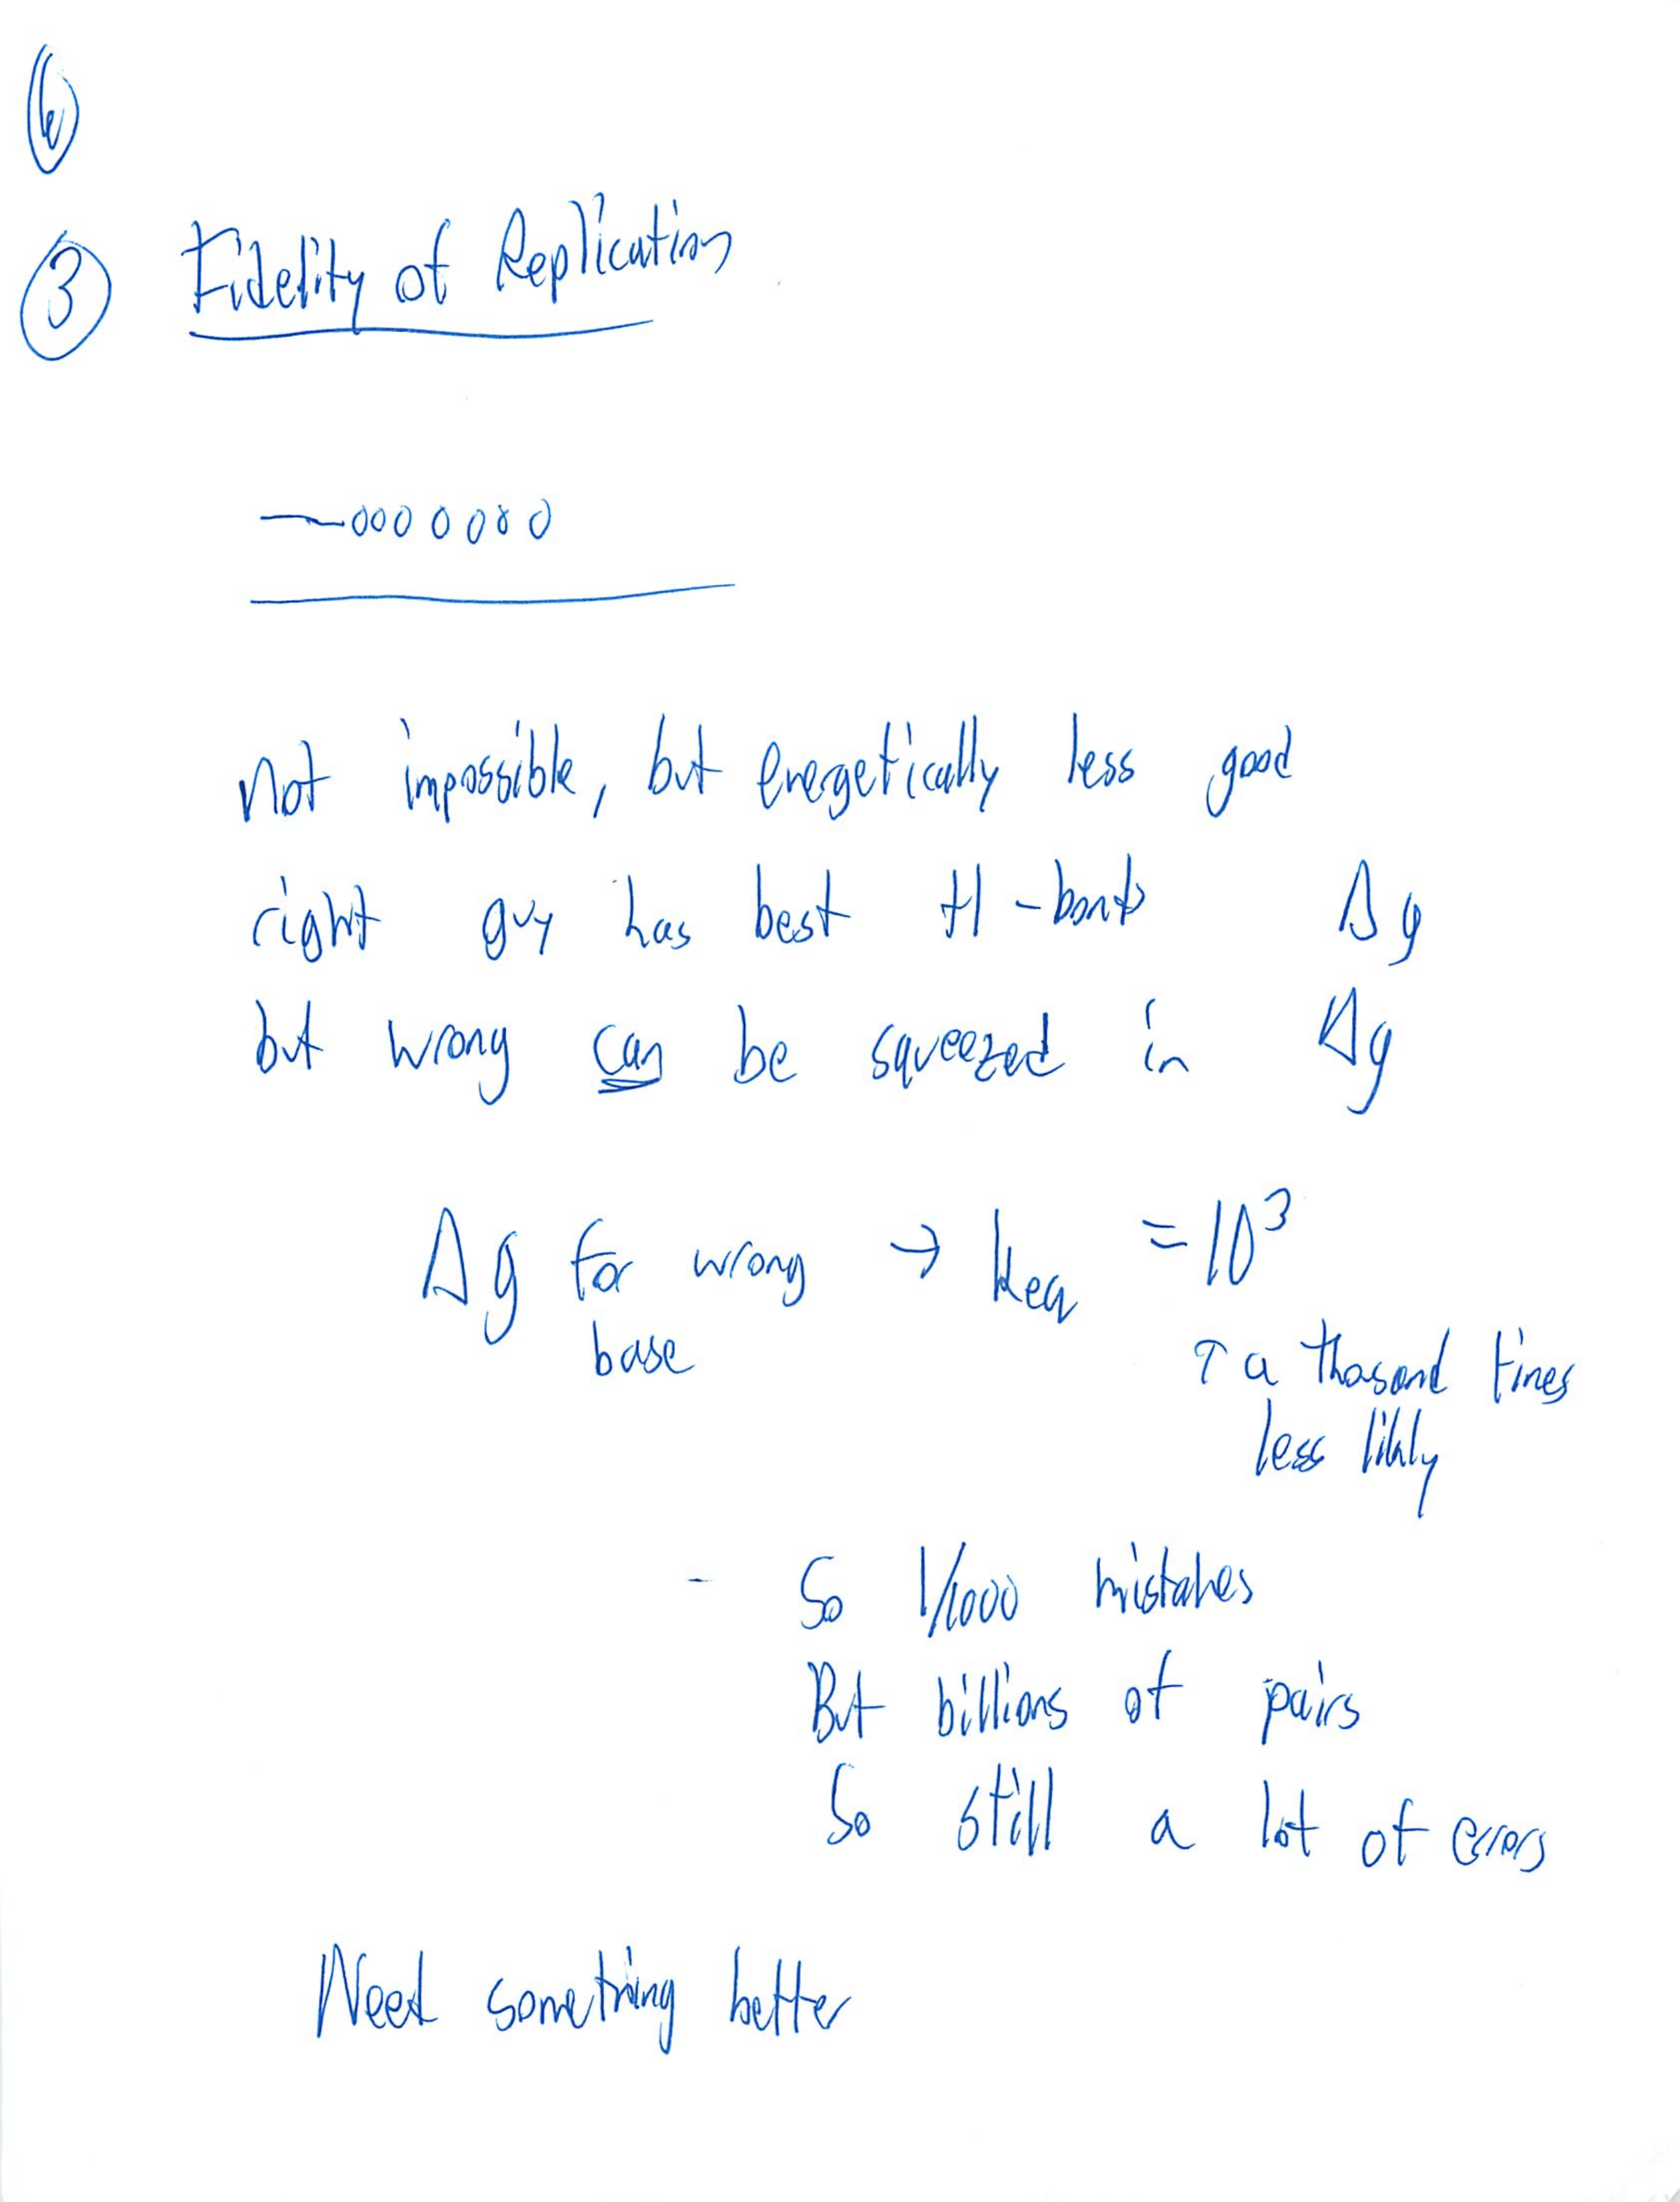 6
3 Fidelity of Replication
Not impossible, but energetically less good
right guy has best H-bonds Δg
but wrong can be squeezed in Δg
Δg for wrong → keq = 10³
base
↑ a thosand times
less likly
- So 1/1000 mistakes
But billions of pairs
So still a lot of errors
Need something better